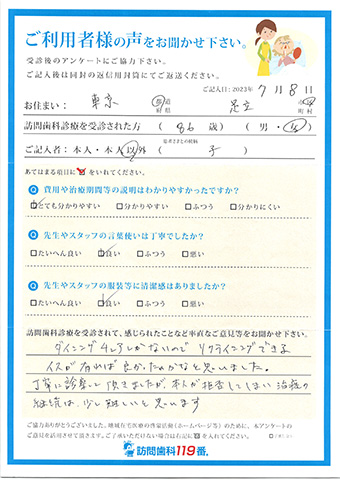 ご利用者様の声をお聞かせ下さい。
受診後のアンケートにご協力下さい。
ご記入後は同封の返信用封筒にてご返送ください。
ご記入日：2023年 7月 8日
お住まい： 東京 都道府県 足立 市区町村
訪問歯科診療を受診された方 （ 86 歳） （ 男・女 ）
ご記入者：本人・本人以外 （ 子 ）
あてはまる項目に☑をいれてください。
Q 費用や治療期間等の説明はわかりやすかったですか？
☑とても分かりやすい □分かりやすい □ふつう □分かりにくい
Q 先生やスタッフの言葉使いは丁寧でしたか？
□たいへん良い ☑良い □ふつう □悪い
Q 先生やスタッフの服装等に清潔感はありましたか？
□たいへん良い ☑良い □ふつう □悪い
訪問歯科診療を受診されて、感じられたことなど率直なご意見等をお聞かせ下さい。
ダイニングチェアしかないので リクライニングできる
イスが有れば良かったかなと思いました。
丁寧に診察して頂きましたが、本人が拒否してしまい 治療の
継続は、少し難しいと思います
ご協力ありがとうございました。地域在宅医療の啓蒙活動（ホームページ等）のために、本アンケートの
ご意見を活用させて頂きます。ご了承いただけない場合は右記に☑を入れてください。
訪問歯科119番。